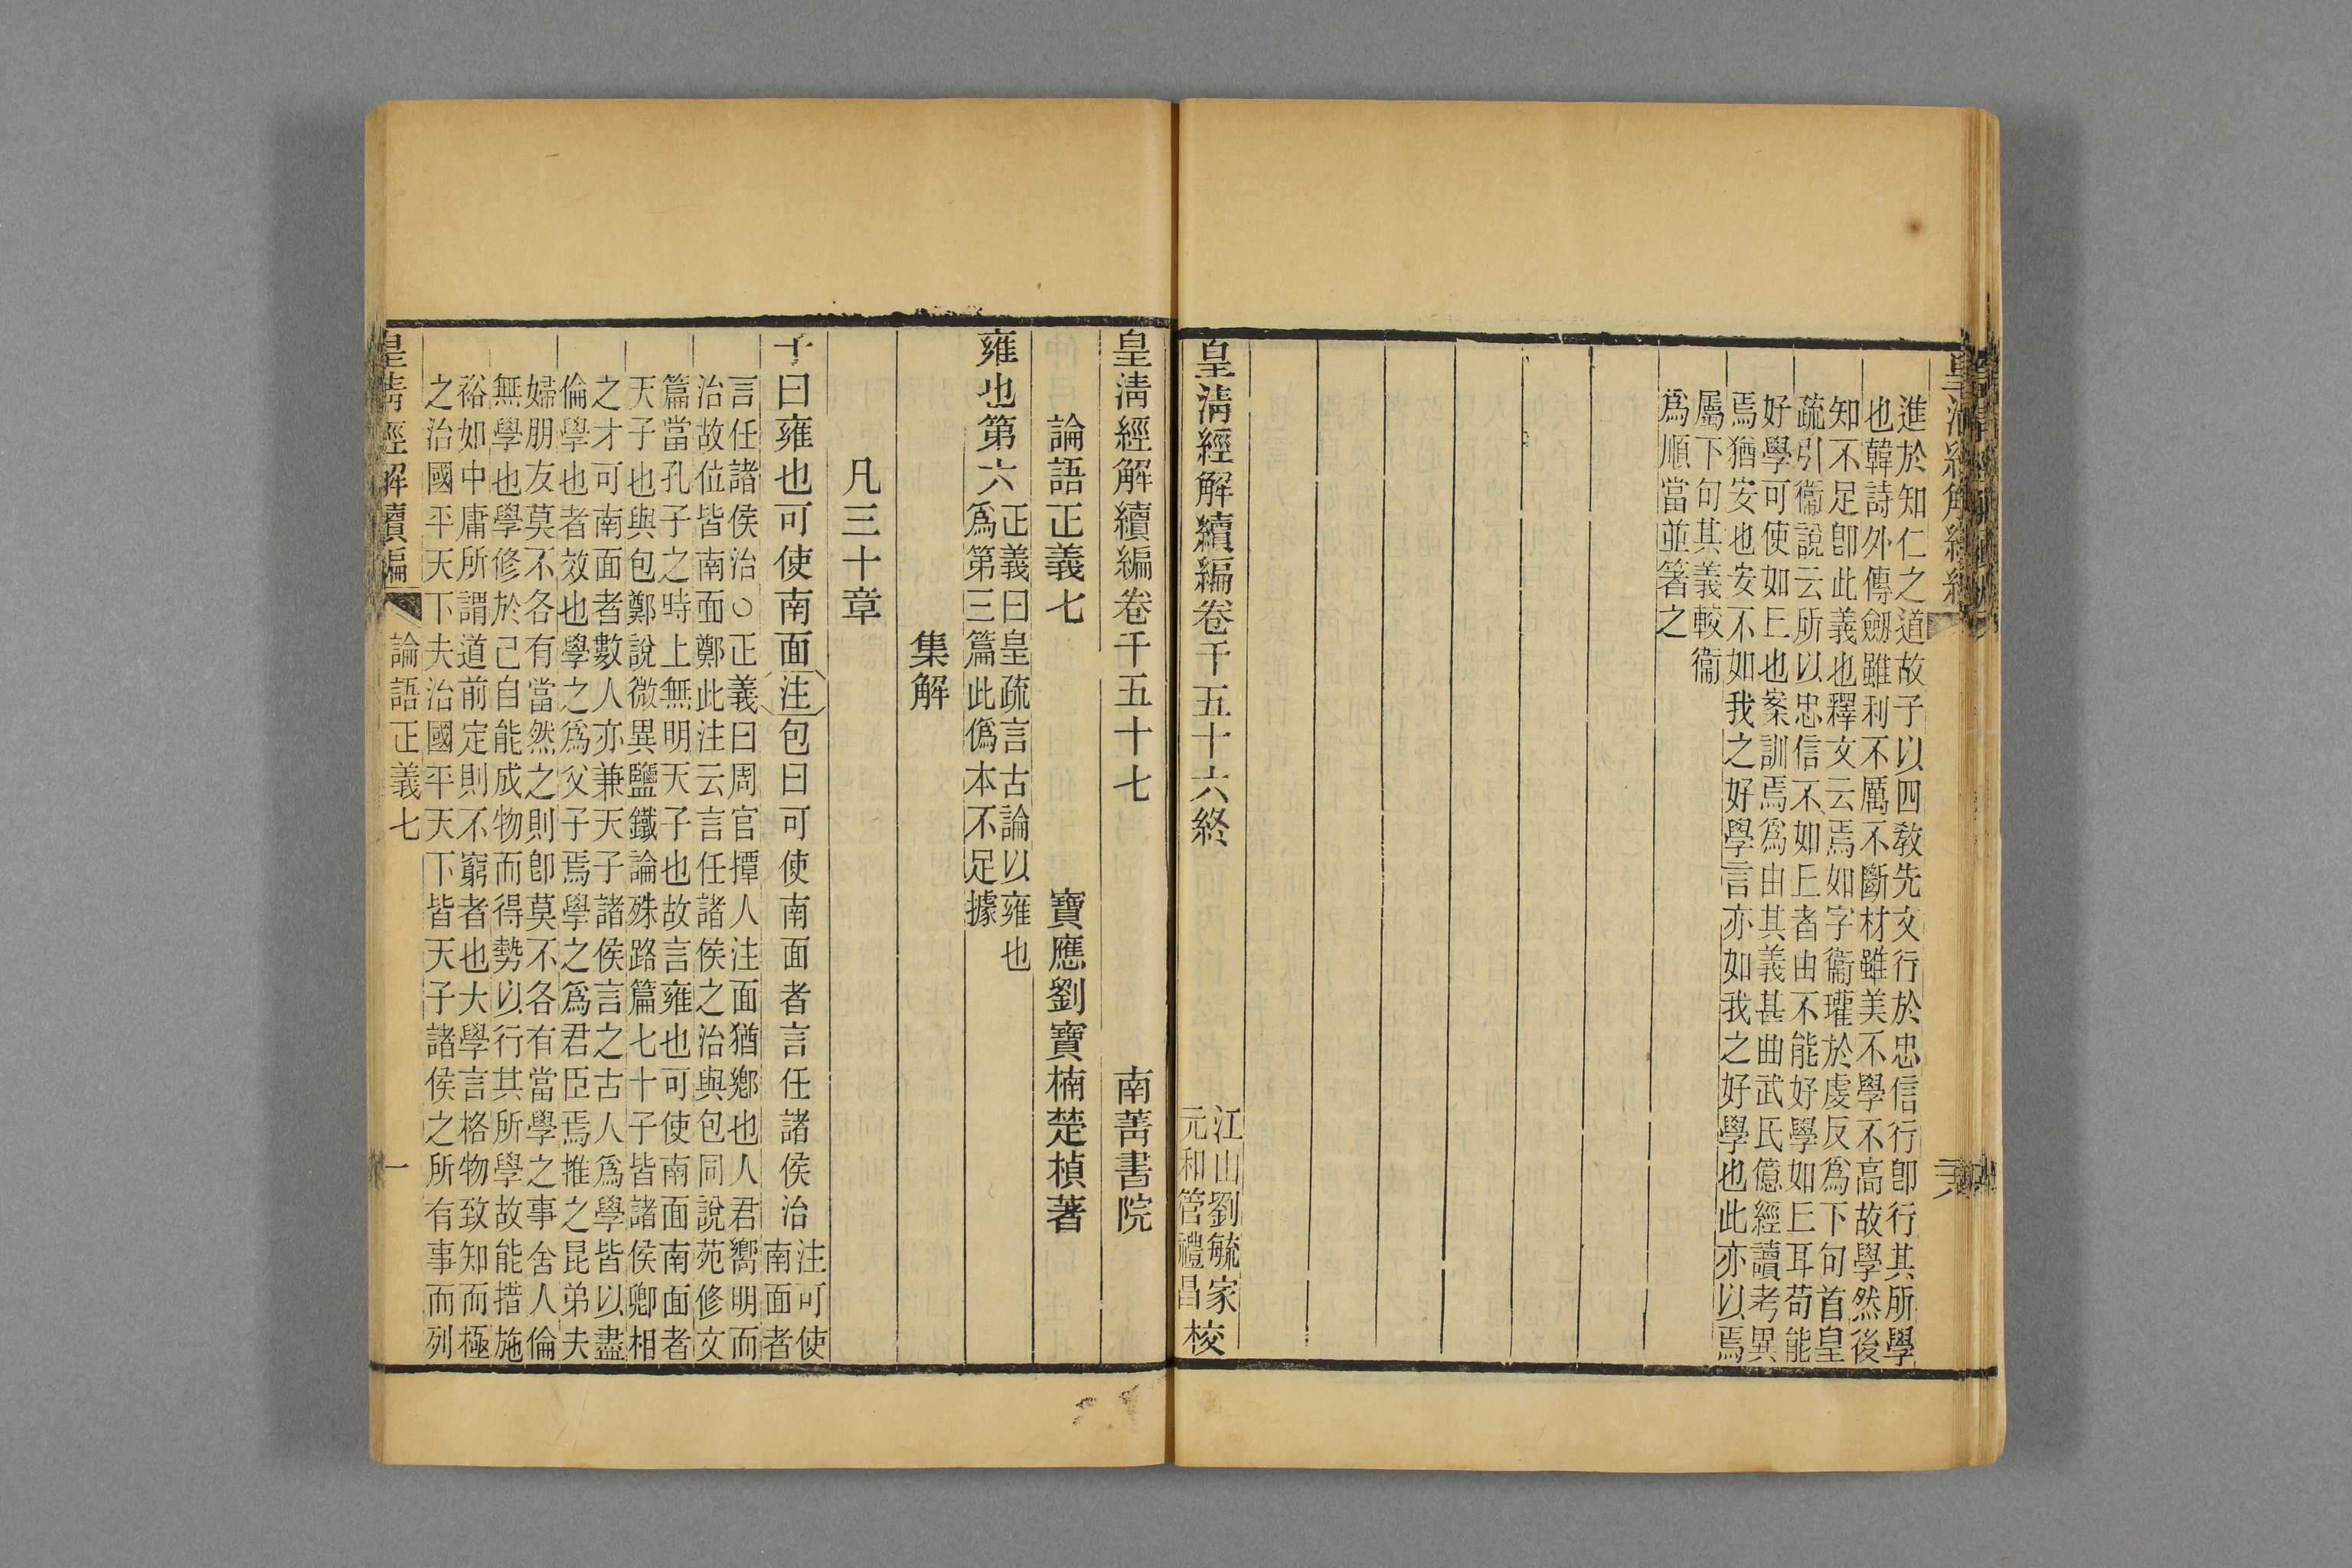 進於知仁之道故子以四敎先文行於忠信行卽行其所學
也韓詩外傳劒雖利不厲不斷材雖美不學不高故學然後
知不足卽此義也釋文云焉如字衞瓘於虔反爲下句首皇
疏引衞說云所以忠信不如丘者由不能好學如丘耳苟能
好學可使如丘也案訓焉爲由其義甚曲武氏億經讀考異
焉猶安也安不如我之好學言亦如我之好學也此亦以焉
屬下句其義較衞
爲順當並箸之
皇淸經解續編卷千五十六終
江山劉毓家
元和管禮昌校
皇淸經解續編卷千五十七
南菁書院
論語正義七
寶應劉寶楠楚楨著
雍也第六
正義曰皇疏言古論以雍也
爲第三篇此僞本不足據
集解
凡三十章
子曰雍也可使南面注包曰可使南面者言任諸侯治
注可使
南面者
言任諸侯治○正義曰周官撢人注面猶鄕也人君嚮明而
治故位皆南面鄭此注云言任諸侯之治與包同說苑修文
篇當孔子之時上無明天子也故言雍也可使南面南面者
天子也與包鄭說微異鹽鐵論殊路篇七十子皆諸侯卿相
之才可南面者數人亦兼天子諸侯言之古人爲學皆以盡
倫學也者效也學之爲父子焉學之爲君臣焉推之昆弟夫
婦朋友莫不各有當然之則卽莫不各有當學之事舍人倫
無學也學修於己自能成物而得勢以行其所學故能措施
裕如中庸所謂道前定則不窮者也大學言格物致知而極
之治國平天下夫治國平天下皆天子諸侯之所有事而列
皇淸經解續編
論語正義七
一